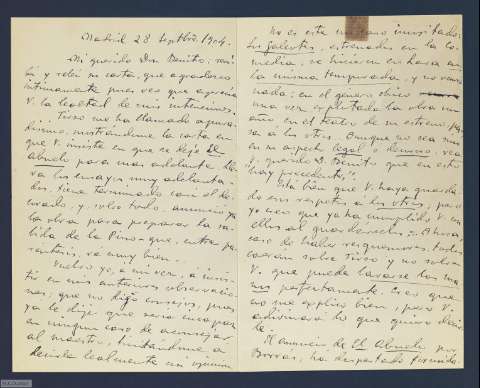 Madrid 28 Septbre. 1904.
Mi querido Don Benito: reci-
bí y releí su carta, que agradezco
íntimamente pues veo que aprecia
V. la lealtad de mis intenciones.
Tirso me ha llamado
mostrándome la carta en
que V. insiste en que se deje El
Abuelo para más adelante.
va los ensayos muy adelanta-
dos, tiene terminado casi el de-
corado, y, sobre todo, anunciada
la obra para preparar la sa-
lida de la Pino = que, entre pa-
réntesis, va muy bien. =
Vuelvo yo, a mi vez, a insis-
tir en mis anteriores observacio-
nes; que no digo consejos, pues
ya le dije que sería incapaz
en ningún caso de aconsejar
al maestro, limitándome a
decirle lealmente mi opinión
No es este un caso inusitado:
Los galeotes, estrenados en la Co-
media, se hicieron en
la misma temporada, y no pasó
nada; en el género chico
una vez explotada la obra un
año en el teatro de su estreno, pa-
sa a los otros. Aunque no sea más
en su aspecto legal o
querido D. Benito que en esto
"hay precedentes".
Está bien que V. haya guarda-
do sus respetos a los otros, pero
yo creo que ya ha cumplido V. con
ellos al guardárselos =. Ahora
caso de haber resquemores, todos
caerán sobre Tirso y no sobre
V. que puede lavarse las ma-
nos perfectamente. Creo que
no me explico bien, pero V.
adivinará lo que quiero decir-
le.
El anuncio de El Abuelo por
Borrás, ha despertado